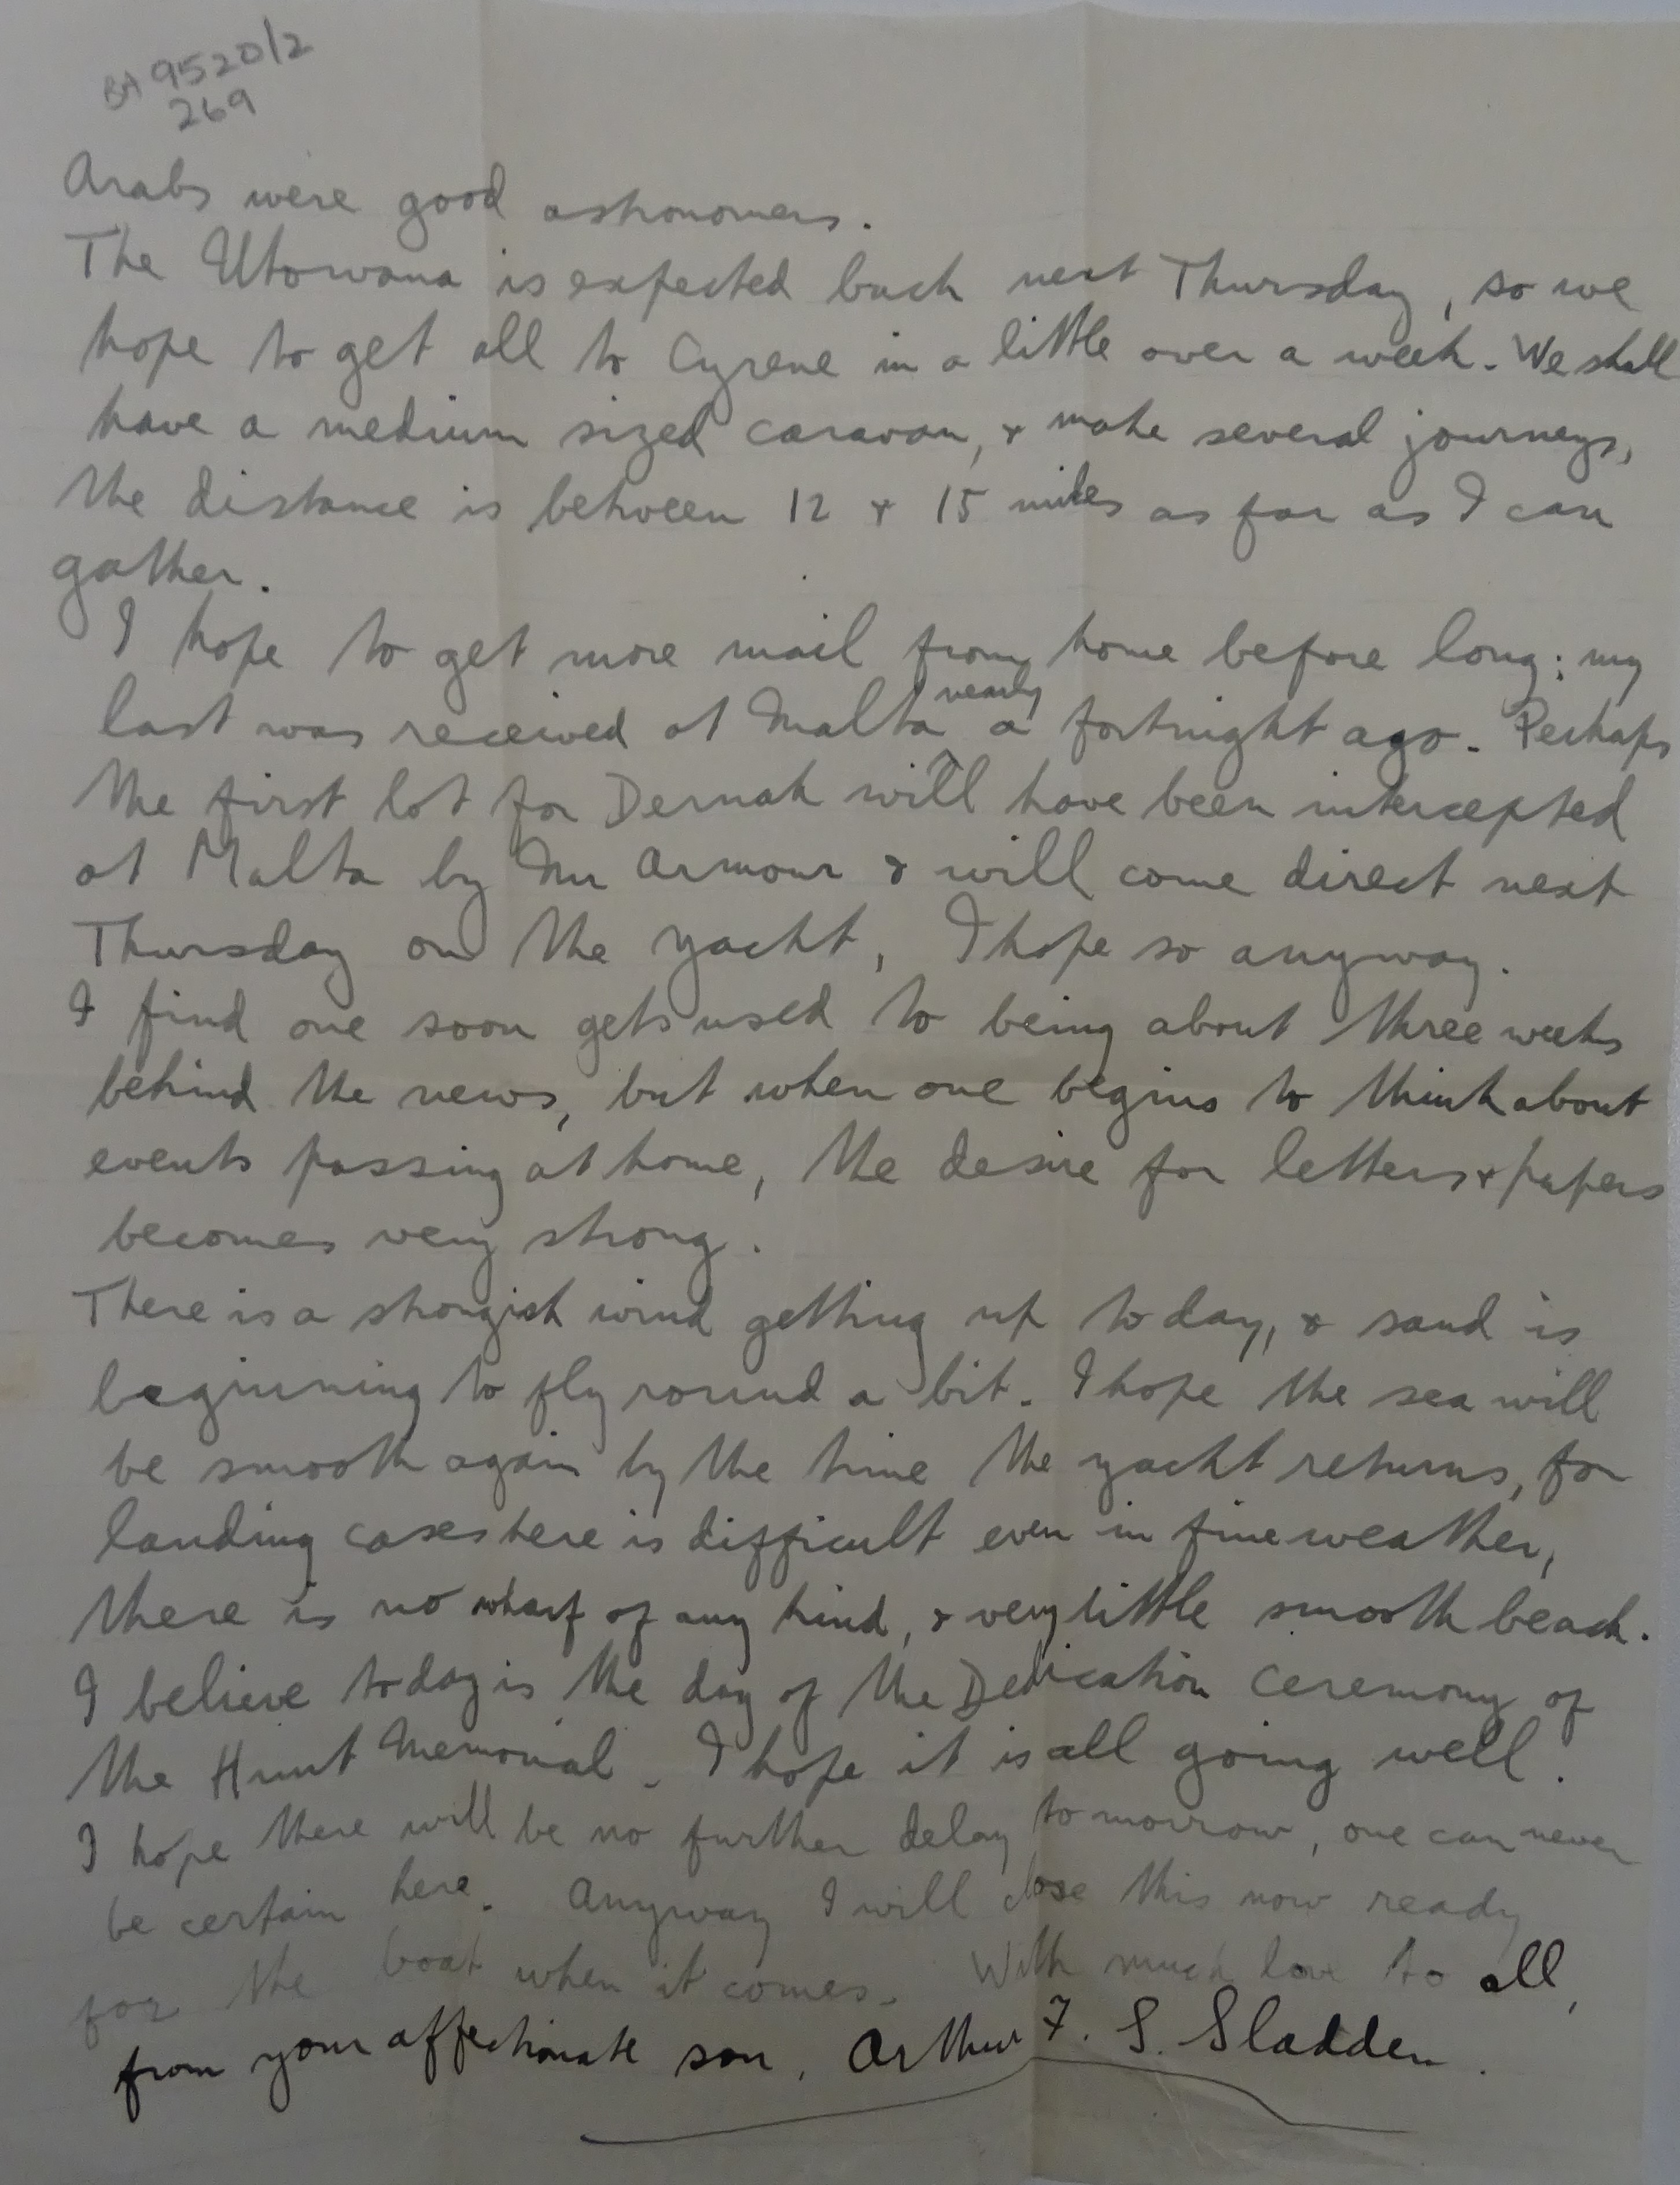 BA 9520/2
269
Arabs were good astronomers.
The Utowana is expected back next Thursday, so we
hope to get all to Cyrene in a little over a week. We shall
have a medium sized caravan, & make several journeys,
the distance is between 12 & 15 miles as far as I can
gather.
I hope to get more mail from home before long; my
last was received at Malta nearly a fortnight ago. Perhaps
the first lot for Dernah will have been intercepted
at Malta by Mr Armour & will come direct next
Thursday on the yacht, I hope so anyway.
I find one soon gets used to being about three weeks
behind the news, but when one begins to think about
events passing at home, the desire for letters & papers
becomes very strong.
There is a strongish wind getting up today, & sand is
beginning to fly round a bit. I hope the sea will
be smooth again by the time the yacht returns, for
landing cases here is difficult even in fine weather,
there is no wharf of any kind, & very little smooth beach.
I believe today is the day of the Dedication ceremony of
the Hunt Memorial. I hope it is all going well.
I hope there will be no further delay tomorrow, one can never
be certain here. Anyway I will close this now ready
for the boat when it comes. With much love to all,
from your affectionate son, Arthur F. S. Sladden.